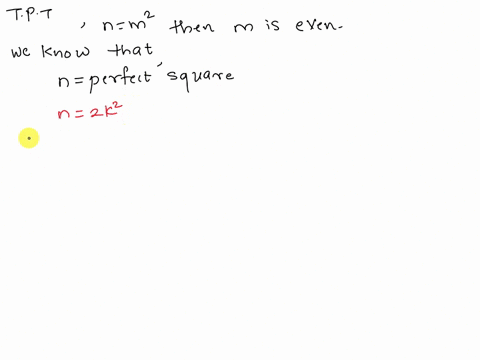 T.P.T , n=m² then m is even.
we know that ,
n = perfect square
n = 2k²